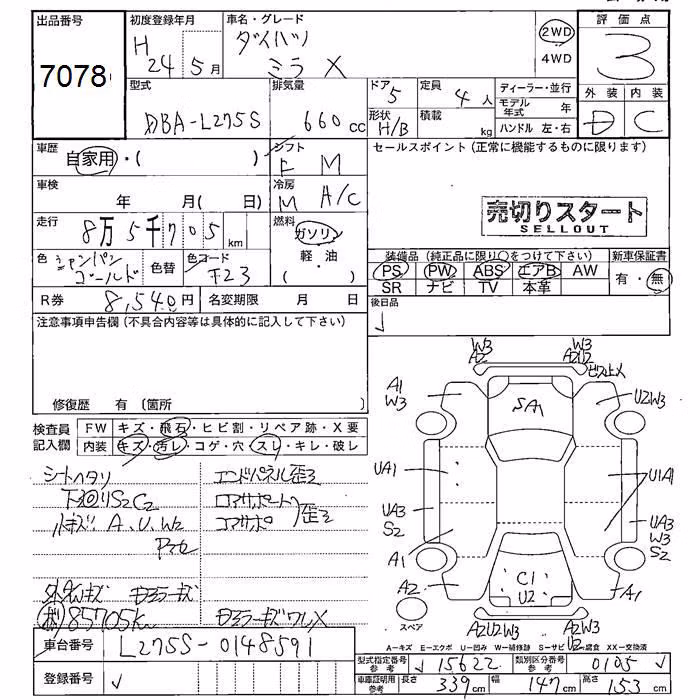 出品番号
7078
初度登録年月
H
24 5月
車名・グレード
ダイハツ
ミラ X
2WD
4WD
評価点
3
外装 内装
D C
型式
DBA-L275S
排気量
660cc
ドア
5
形状
H/B
定員
4人
積載
kg
ディーラー・並行
モデル年式 年
ハンドル 左・右
車歴
自家用・( )
シフト
F M
車検
年 月( 日)
冷房
M A/C
走行
8万5千705km
燃料
ガソリン
軽・油
( )
色
シャンパンゴールド
色替
色コード
T23
R券
8,540円
名変期限 月 日
セールスポイント(正常に機能するものに限ります)
売切りスタート
SELLOUT
装備品(純正品に限り○をつけて下さい)
PS PW ABS エアB AW
SR ナビ TV 本革
新車保証書
有・無
後日品
注意事項申告欄(不具合内容等は具体的に記入して下さい)
修復歴 有 〔箇所
検査員記入欄
FW キズ・飛石・ヒビ割・リペア跡・X要
内装 キズ・汚レ・コゲ・穴・スレ・キレ・破レ
シートヘタリ
下回りS2C2
A、U、W2
エンドパネル歪ミ
コアサポート
コアサポ
歪ミ
85705km
車台番号
L275S-0148591
登録番号
W3
A2
W3
A2U2
ビス止メ
A1
W3
U2W3
SA1
UA1
U1A1
UA3
S2
UA3
W3
S2
A1
A2
C1
U2
A1
スペア
A2U2W3
A2W3
U2
A=キズ E=エクボ U=凹み W=補修跡 S=サビ C=腐食 XX=交換済
型式指定番号 参考
15622
類別区分番号 参考
0105
車庫証明用 参考
長さ 339cm
幅 147cm
高さ 153cm